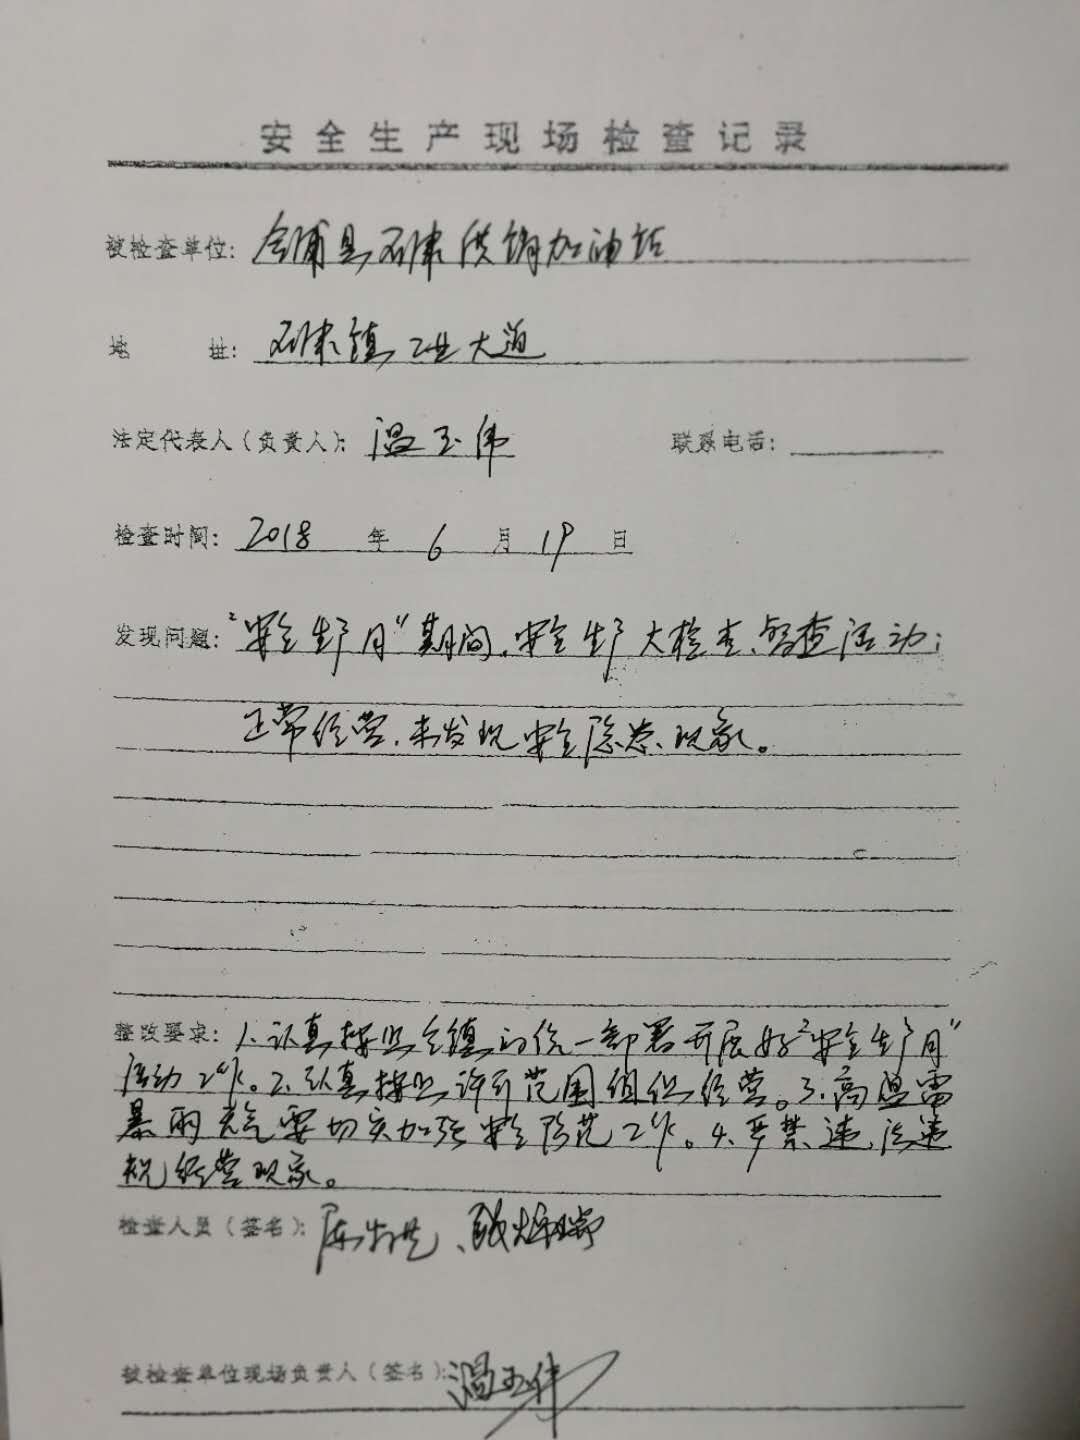 安全生产现场检查记录
被检查单位：合浦县石康供销加油站
地 址：石康镇工业大道
法定代表人（负责人）：温玉伟 联系电话：
检查时间：2018 年 6 月 19 日
发现问题："安全生产月"期间，安全生产大检查、督查活动；
正常经营，未发现安全隐患现象。
整改要求：1.认真按照全镇的统一部署开展好"安全生产月"
活动工作。2.认真按照许可范围组织经营。3.高温雷
暴雨天气要切实加强安全防范工作。4.严禁违法违
规经营现象。
检查人员（签名）：
被检查单位现场负责人（签名）：温玉伟